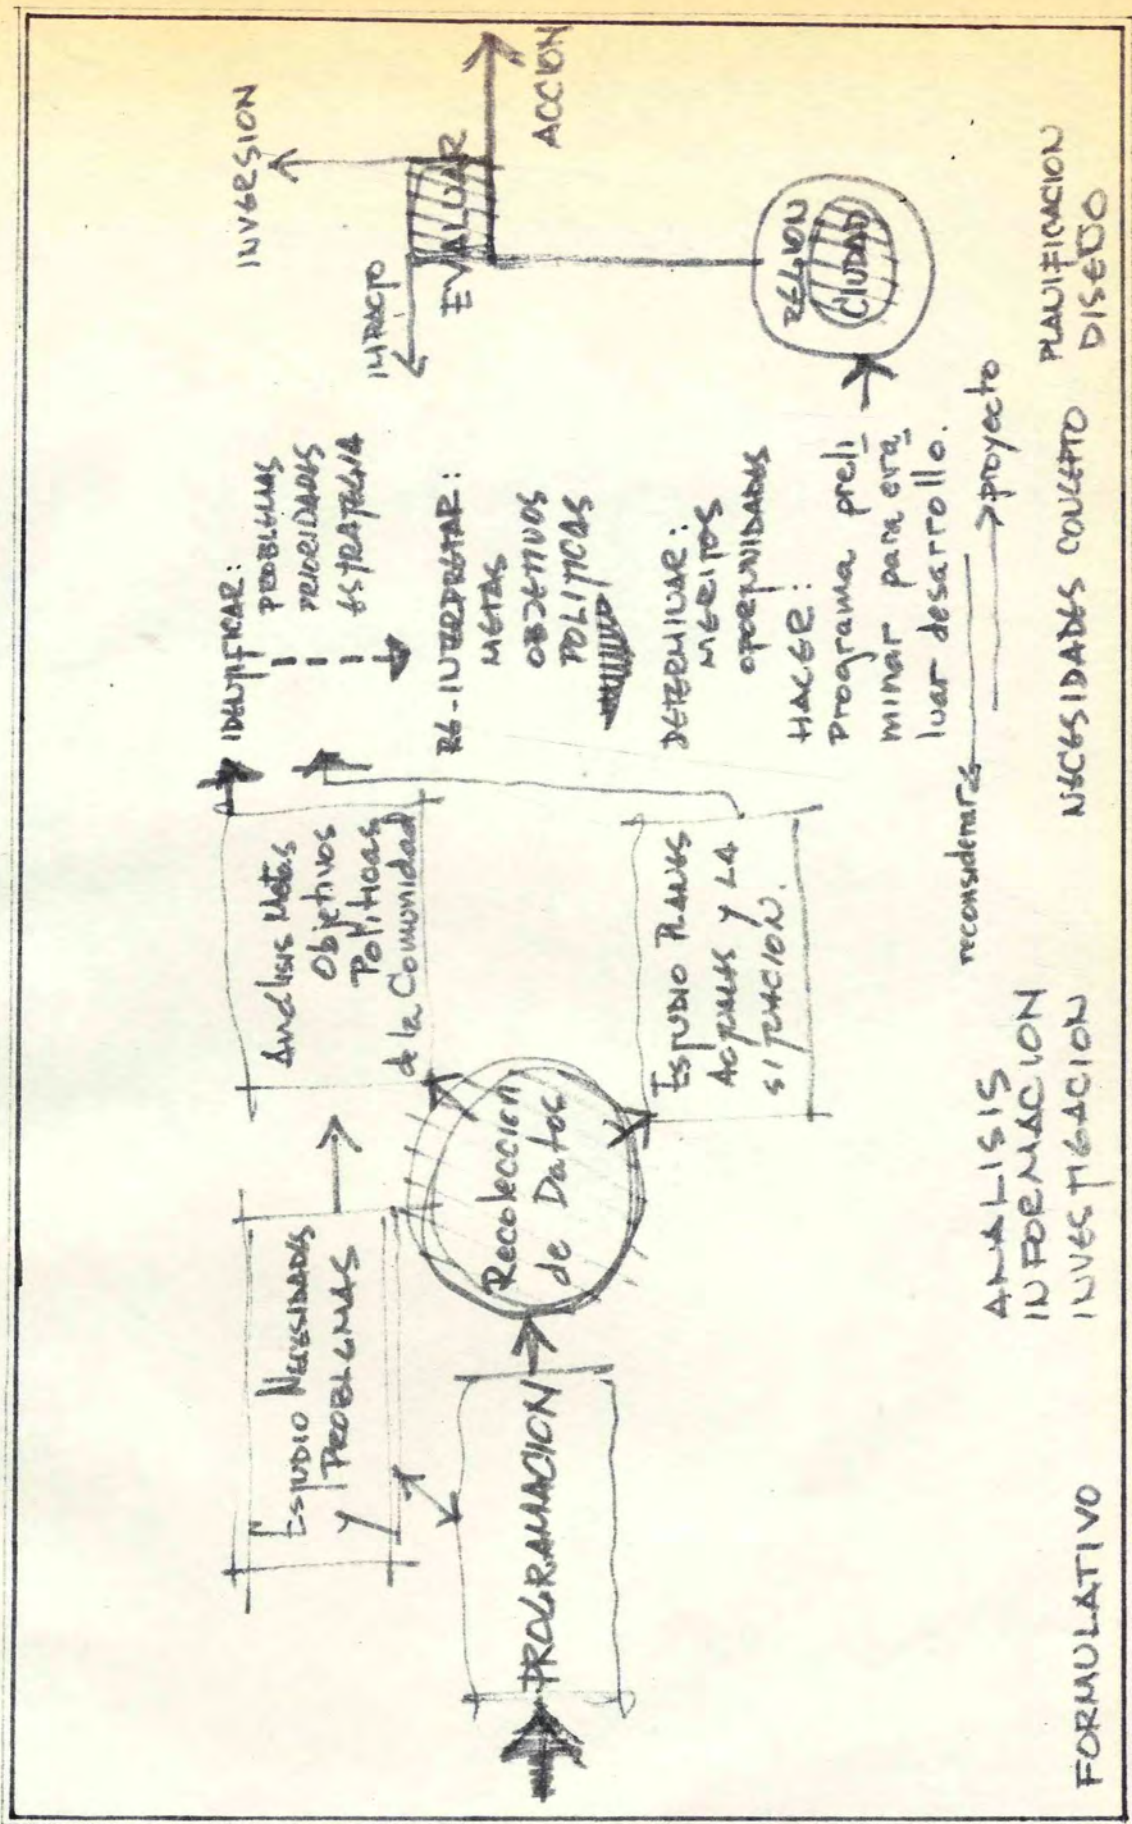 PROGRAMACION
Estudio Necesidades
y Problemas
Recoleccion
de Datos
Analisis Metas
Objetivos
Politicas
de la Comunidad
Estudio Planes
Actuales y la
situacion.
IDENTIFICAR:
PROBLEMAS
PRIORIDADES
ESTRATEGIA
RE-INTERPRETAR:
METAS
OBJETIVOS
POLITICAS
DETERMINAR:
MERITOS
OPORTUNIDADES
HACER:
Programa preli
minar para eva
luar desarrollo.
INVERSION
IMPACTO
EVALUAR
ACCION
REGION
CIUDAD
reconsiderar
proyecto
FORMULATIVO
ANALISIS
INFORMACION
INVESTIGACION
NECESIDADES CONCEPTO
PLANIFICACION
DISEÑO